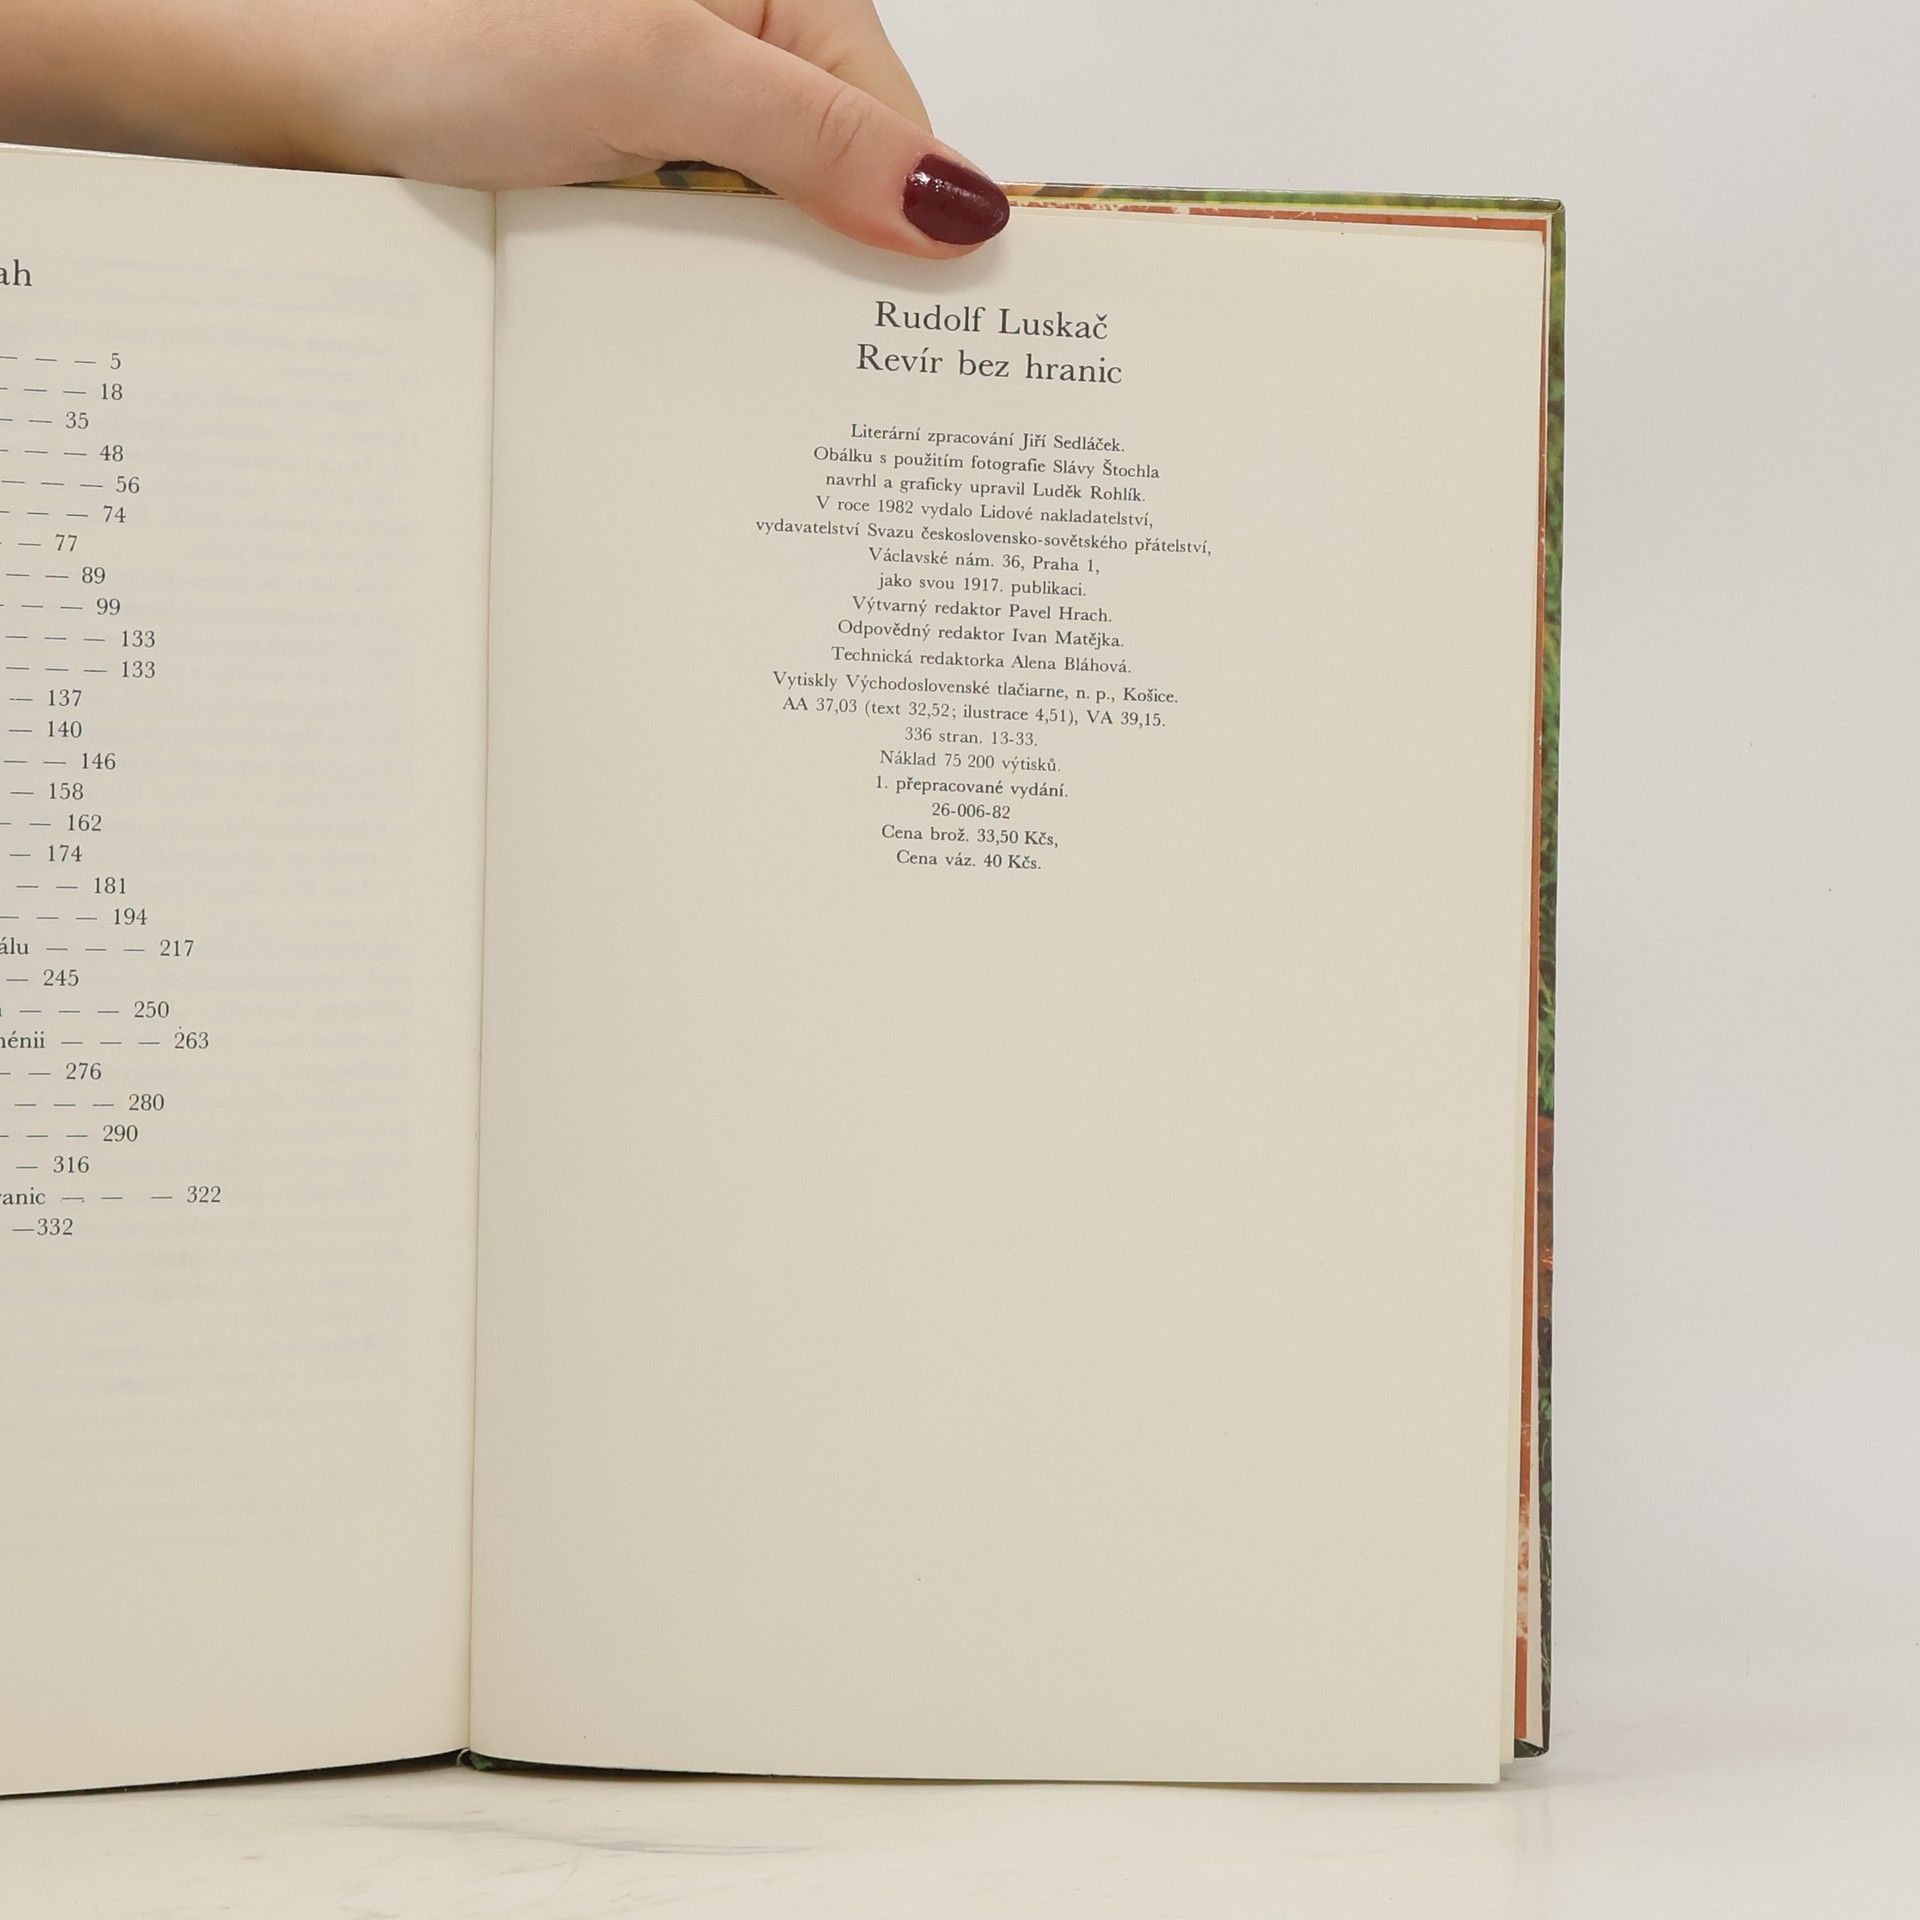 ah
— — — 5
— — — 18
— — 35
— — — 48
— — — 56
— — — 74
— — 77
— — 89
— — — 99
— — — 133
— — — 133
— 137
— 140
— — 146
— 158
— — 162
— 174
— — 181
— — — 194
álu — — — 217
— 245
— — — 250
énii — — — 263
— — 276
— — — 280
— — — 290
— 316
ranic — — — 322
—332
Rudolf Luskač
Revír bez hranic
Literární zpracování Jiří Sedláček.
Obálku s použitím fotografie Slávy Štochla
navrhl a graficky upravil Luděk Rohlík.
V roce 1982 vydalo Lidové nakladatelství,
vydavatelství Svazu československo-sovětského přátelství,
Václavské nám. 36, Praha 1,
jako svou 1917. publikaci.
Výtvarný redaktor Pavel Hrach.
Odpovědný redaktor Ivan Matějka.
Technická redaktorka Alena Bláhová.
Vytiskly Východoslovenské tlačiarne, n. p., Košice.
AA 37,03 (text 32,52; ilustrace 4,51), VA 39,15.
336 stran. 13-33.
Náklad 75 200 výtisků.
1. přepracované vydání.
26-006-82
Cena brož. 33,50 Kčs,
Cena váz. 40 Kčs.